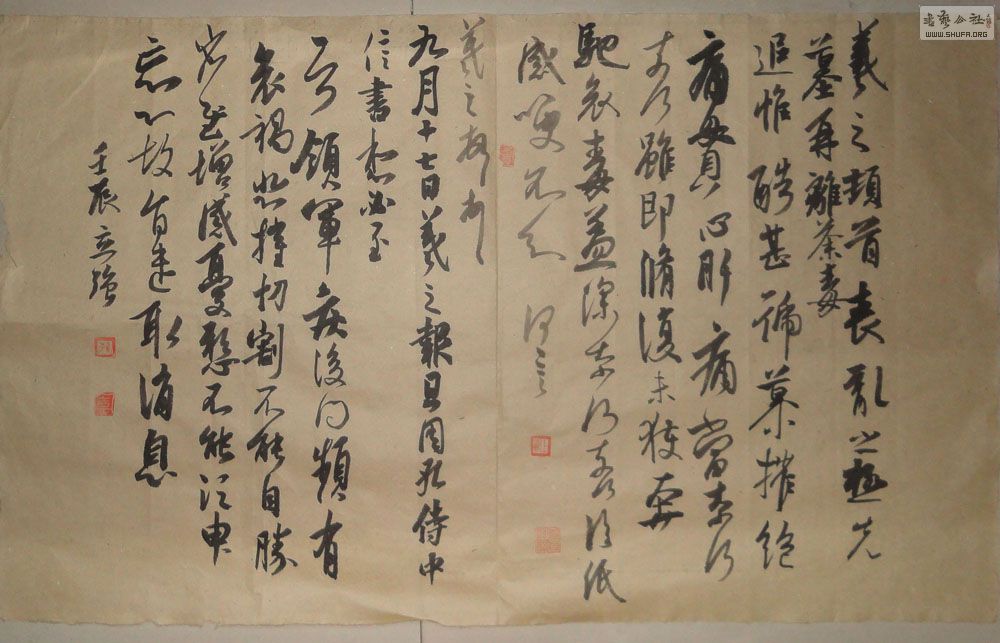 羲之頓首喪亂之極先
墓再離荼毒
追惟酷甚號慕摧絶
痛貫心肝痛當柰何
柰何雖即脩復未獲奔
馳哀毒益深柰何柰何臨紙
感哽不知何言
羲之頓首頓首
九月十七日羲之報且因孔侍中
信書想必至
不知領軍疾後問頻有
哀禍悲摧切割不能自勝
省慰增感憂懸不能須臾
忘心故旨遣取消息
壬辰立強
書藝公社
WWW.SHUFA.ORG